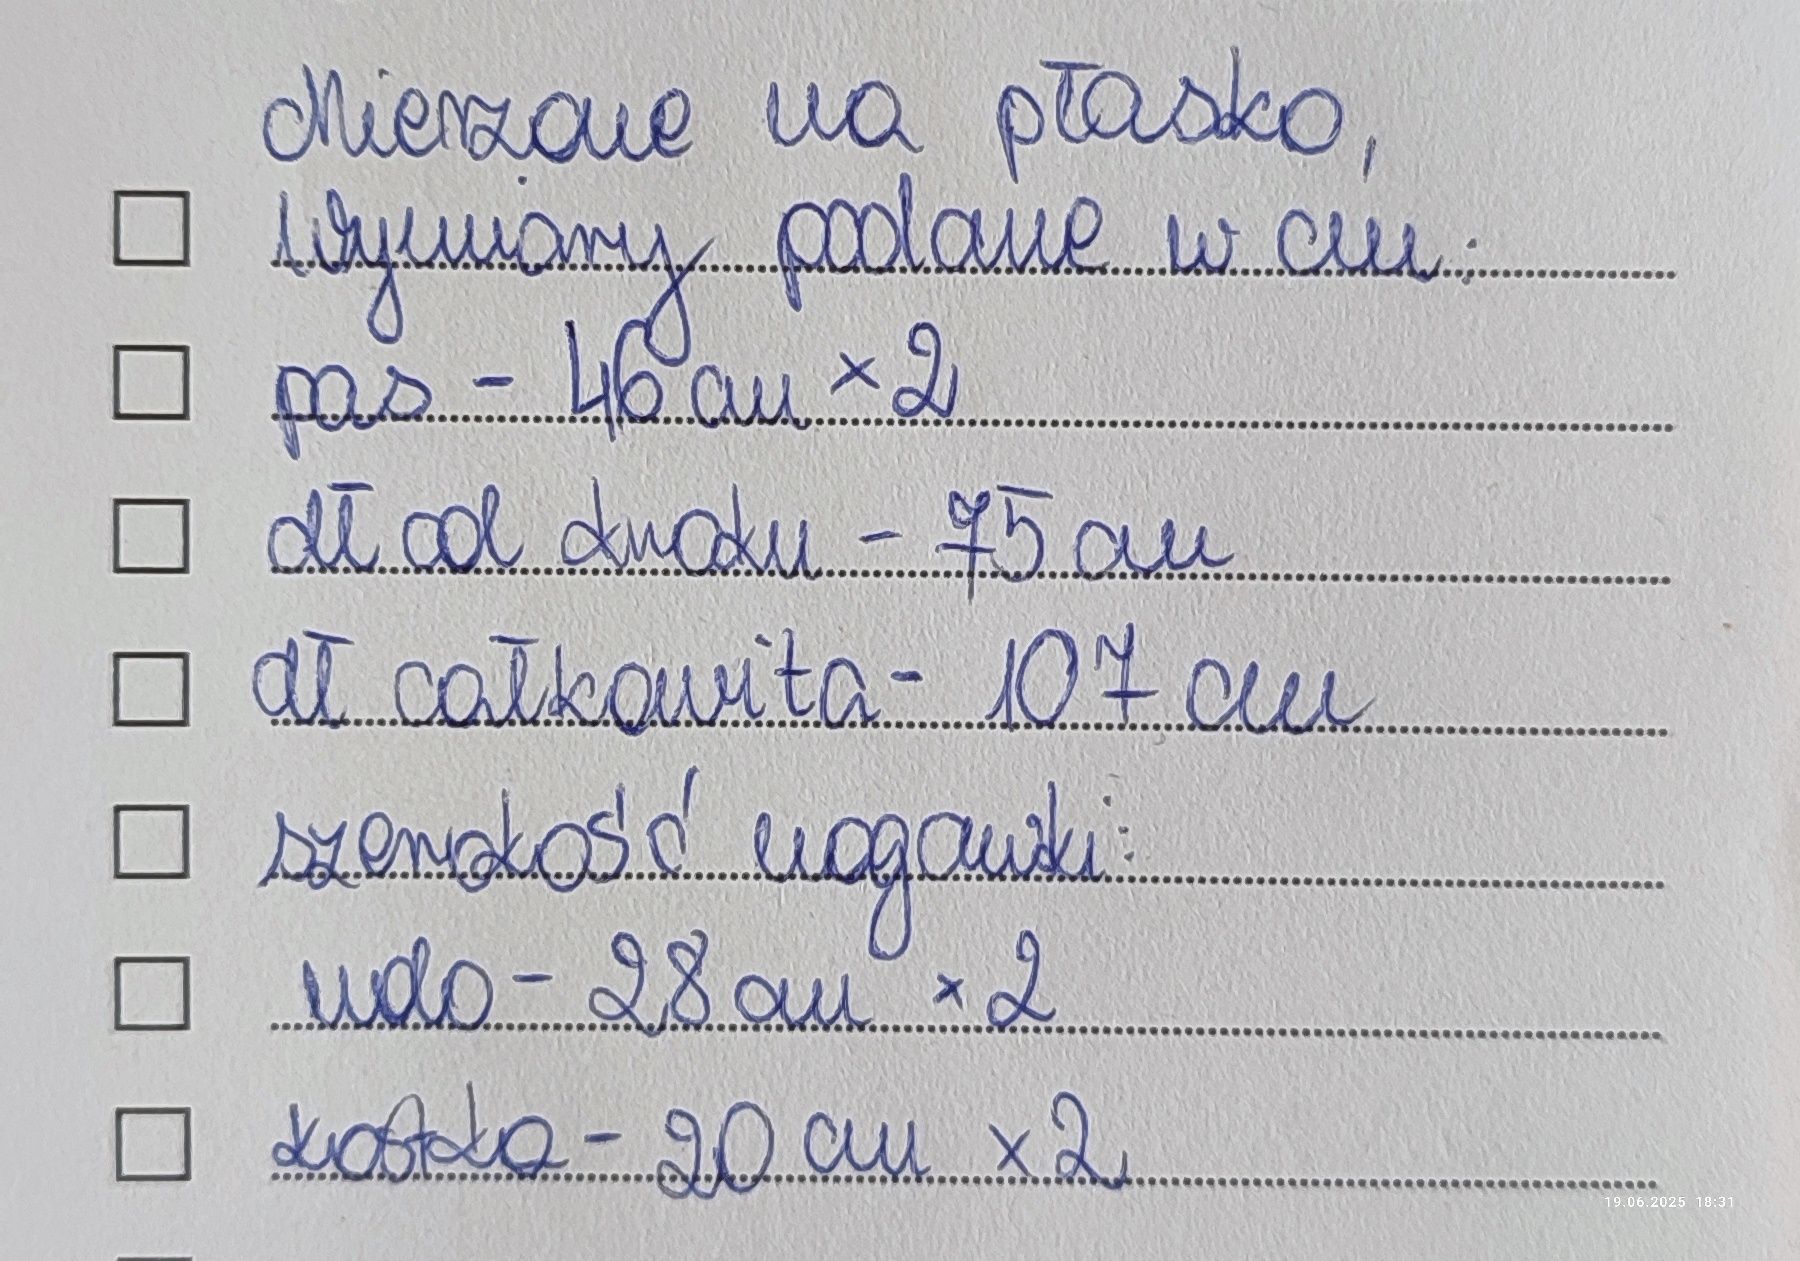 Mierzone na płasko,
Wymiary podane w cm:
pas - 46 cm x 2
dł od kroku - 75 cm
dł całkowita - 107 cm
szerokość nogawki:
udo - 28 cm x 2
kostka - 20 cm x 2
19.06.2025 18:31